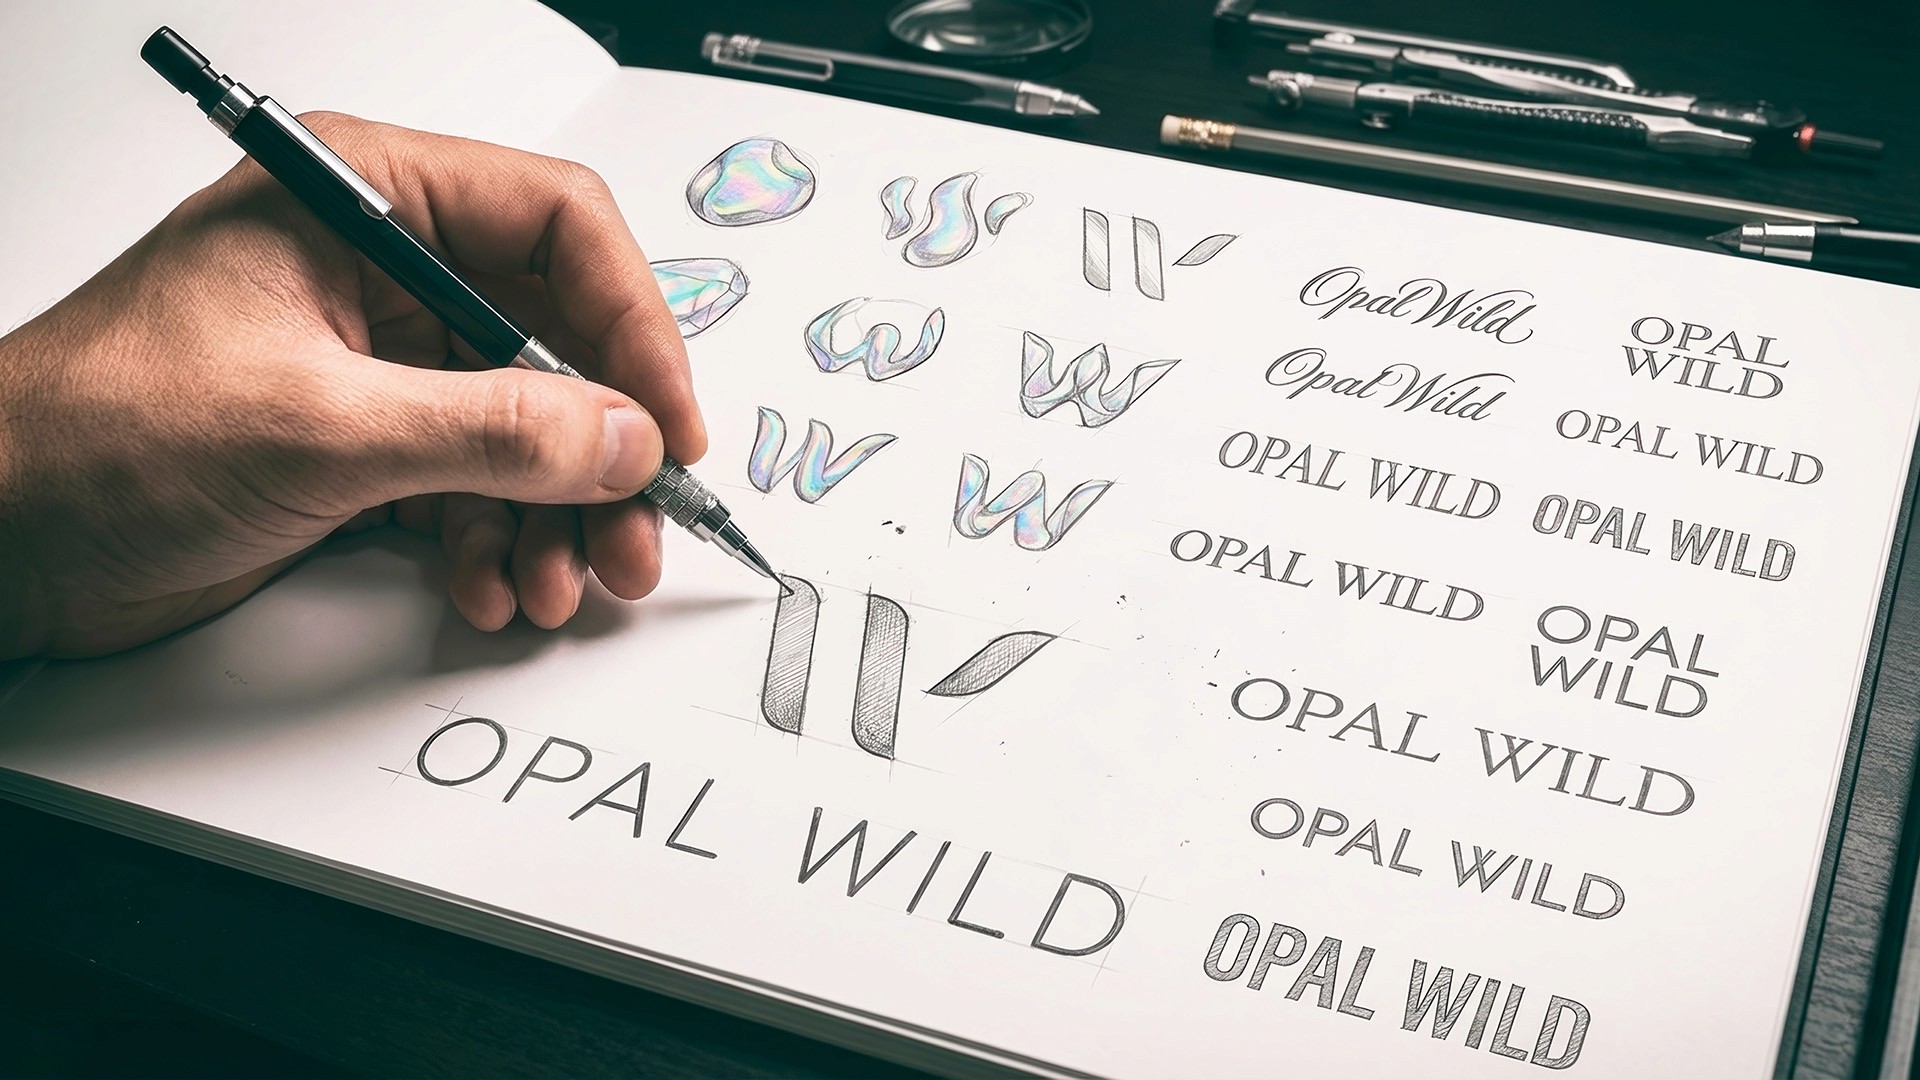 Opal Wild
OPAL
WILD
Opal Wild
OPAL WILD
OPAL WILD
OPAL WILD
OPAL WILD
OPAL
WILD
OPAL WILD
OPAL WILD
OPAL WILD
W
OPAL WILD